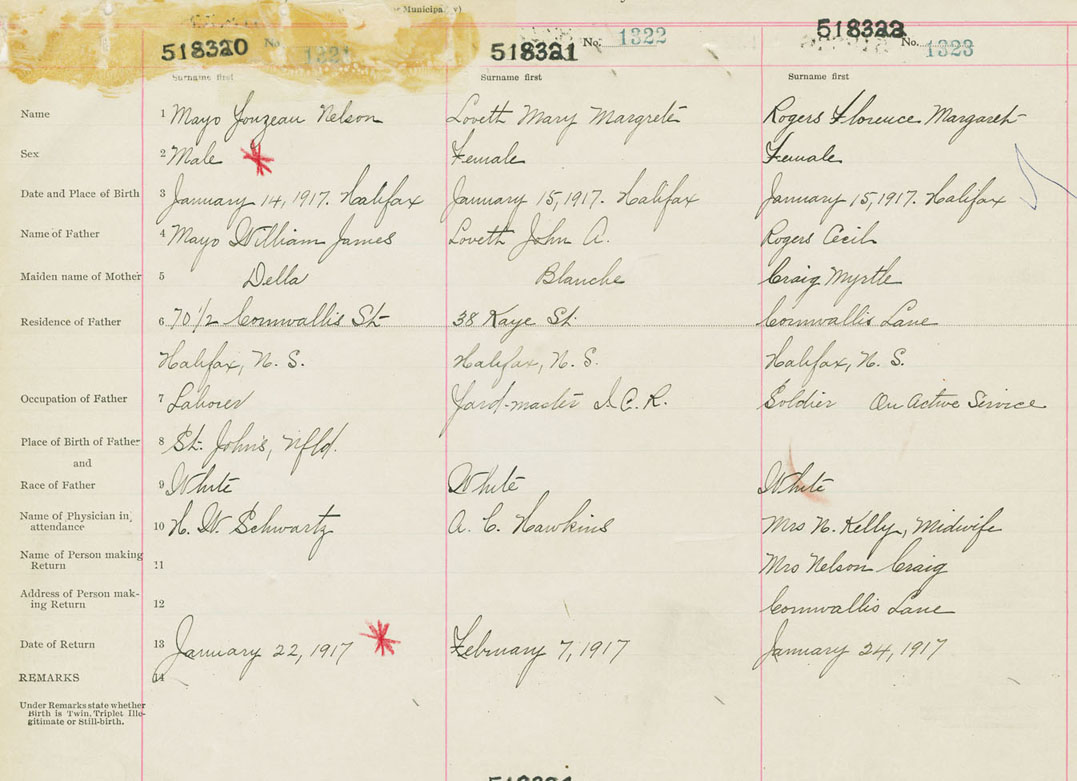 Municipa
518320 No. 1321 518321 No. 1322 518322 No. 1323
Surname first Surname first Surname first
Name 1 Mayo Nelson Lovett Mary Margrete Rogers Florence Margaret
Sex 2 Male Female Female
Date and Place of Birth 3 January 14, 1917. Halifax January 15, 1917. Halifax January 15, 1917. Halifax
Name of Father 4 Mayo William James Lovett John A. Rogers Cecil
Maiden name of Mother 5 Della Blanche Craig Myrtle
Residence of Father 6 70 1/2 Cornwallis St 38 Kaye St. Cornwallis Lane
Halifax, N. S. Halifax, N. S. Halifax, N. S.
Occupation of Father 7 Laborer Yard-master I. C. R. Soldier On Active Service
Place of Birth of Father 8 St. John's, Nfld.
and
Race of Father 9 White White White
Name of Physician in attendance 10 H. W. Schwartz A. C. Hawkins Mrs N. Kelly, Midwife
Name of Person making Return 11 Mrs Nelson Craig
Address of Person mak-ing Return 12 Cornwallis Lane
Date of Return 13 January 22, 1917 February 7, 1917 January 24, 1917
REMARKS 14
Under Remarks state whether
Birth is Twin, Triplet Ille-
gitimate or Still-birth.